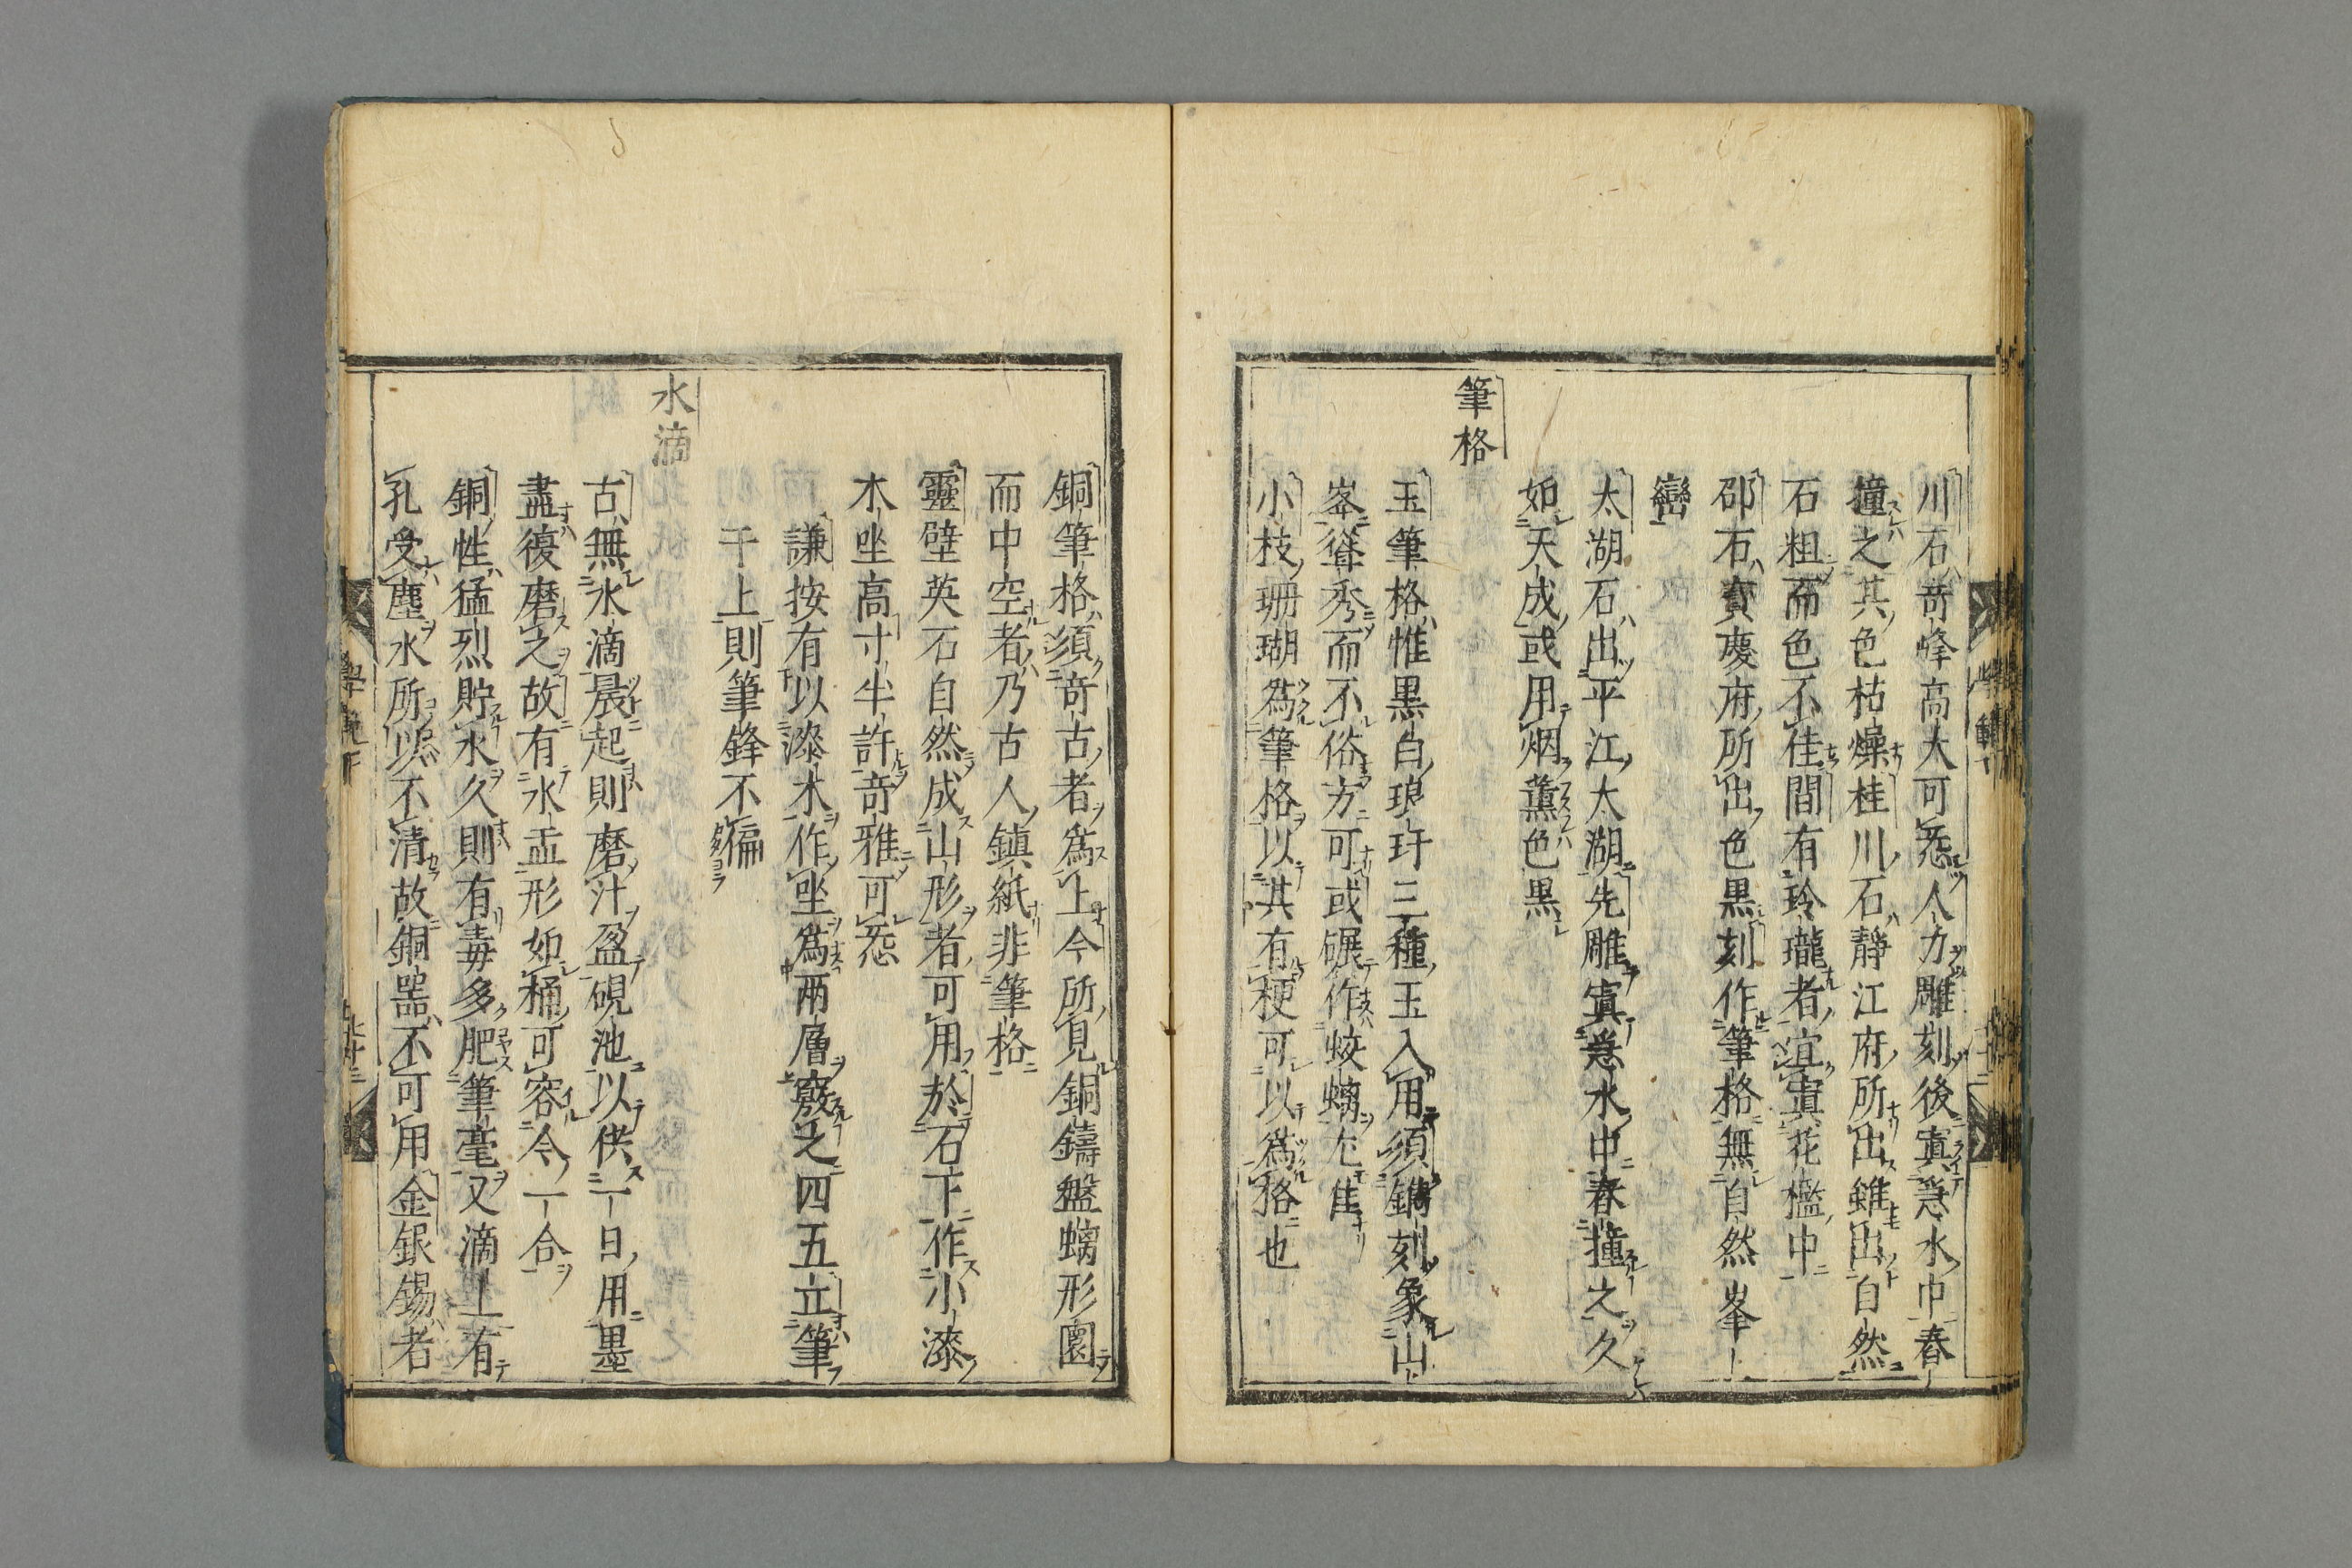 川石奇峰高大可㤅人力雕刻後寘急水中舂
撞之其色枯燥桂川石靜江府所出雖出自然
石粗而色不佳間有玲瓏者宜寘花檻中
邵石寶慶府所出色黒刻作筆格無自然峯
巒
太湖石出平江太湖先雕寘急水中舂撞之久
如天成或用烟薫色黒
筆格
玉筆格惟黒白琅玕三種玉入用須鐫刻象山
峯聳秀而不俗方可或碾作蛟螭尤佳
小枝珊瑚爲筆格以其有梗可以爲格也
銅筆格須奇古者爲上今所見銅鑄盤螭形圜
而中空者乃古人鎮紙非筆格
靈壁英石自然成山形者可用於石下作小漆
木坐高寸半許奇雅可㤅
謙按有以漆木作坐爲兩層竅之四五立筆
于上則筆鋒不偏
水滴
古無水滴晨起則磨汁盈硯池以供一日用墨
盡復磨之故有水盂形如桶可容今一合
銅性猛烈貯水久則有毒多肥筆毫又滴上有
孔受塵水所以不清故銅噐不可用金銀錫者